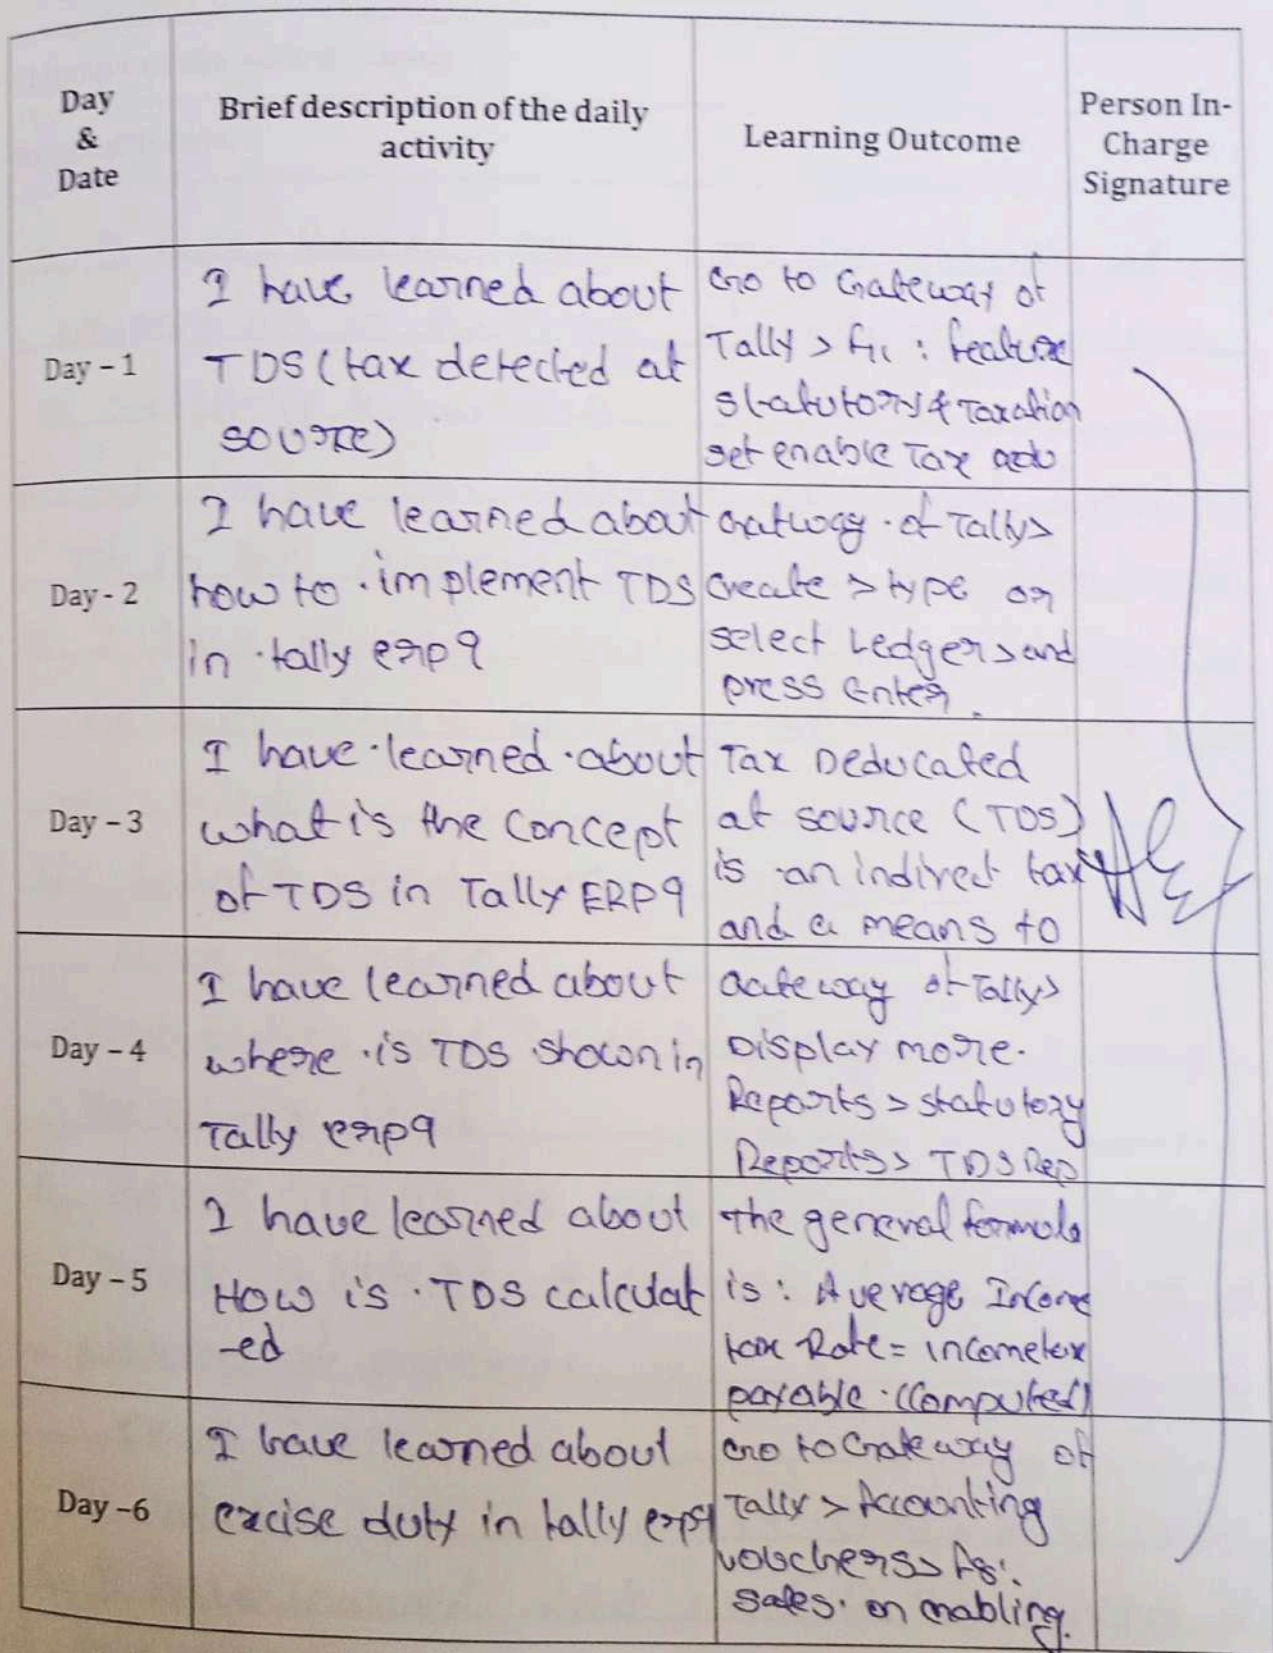 Day
&
Date
Brief description of the daily
activity
Learning Outcome
Person In-
Charge
Signature
Day - 1
I have learned about
TDS (tax detected at
source)
Go to Gateway of
Tally > F11 : feature
statutory & Taxation
set enable Tax
Day - 2
I have learned about
how to implement TDS
in tally erp9
Gatway of Tally>
Create > type or
select Ledger> and
press Enter.
Day - 3
I have learned about
what is the concept
of TDS in Tally ERP9
Tax Deducated
at source (TDS)
is an indirect tax
and a means to
Day - 4
I have learned about
where is TDS shown in
Tally erp9
Gateway of Tally>
Display more.
Reports > statutory
Reports> TDS Rep
Day - 5
I have learned about
How is TDS calculat
-ed
The general formula
is : Average Income
tax Rate = incometax
payable (computed)
Day -6
I have learned about
excise duty in tally erp9
Go to Gateway of
Tally > Accounting
vouchers> F8:
Sales. on enabling.